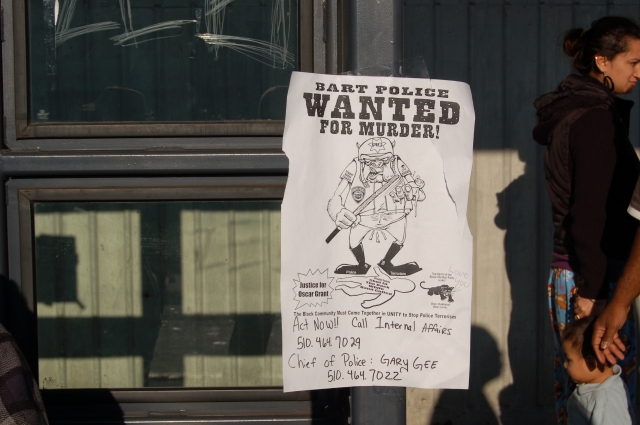 BART POLICE
WANTED
FOR MURDER!
Police
Terrorism
Justice for
Oscar Grant
The Black Community Must Come Together in UNITY to Stop Police Terrorism
Act Now!! Call Internal Affairs
510.464.7029
Chief of Police: GARY GEE
510.464.7022